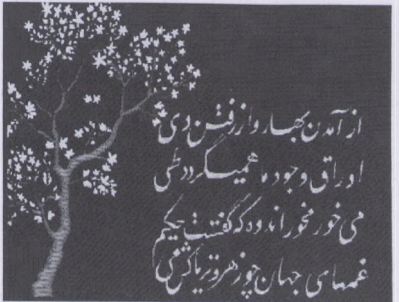 از آمدن بهار و از رفتن دی
اوراق وجود ما همیگردد طی
می خور مخور اندوه که گفتست حکیم
غمهای جهان چو زهر و تریاکش می